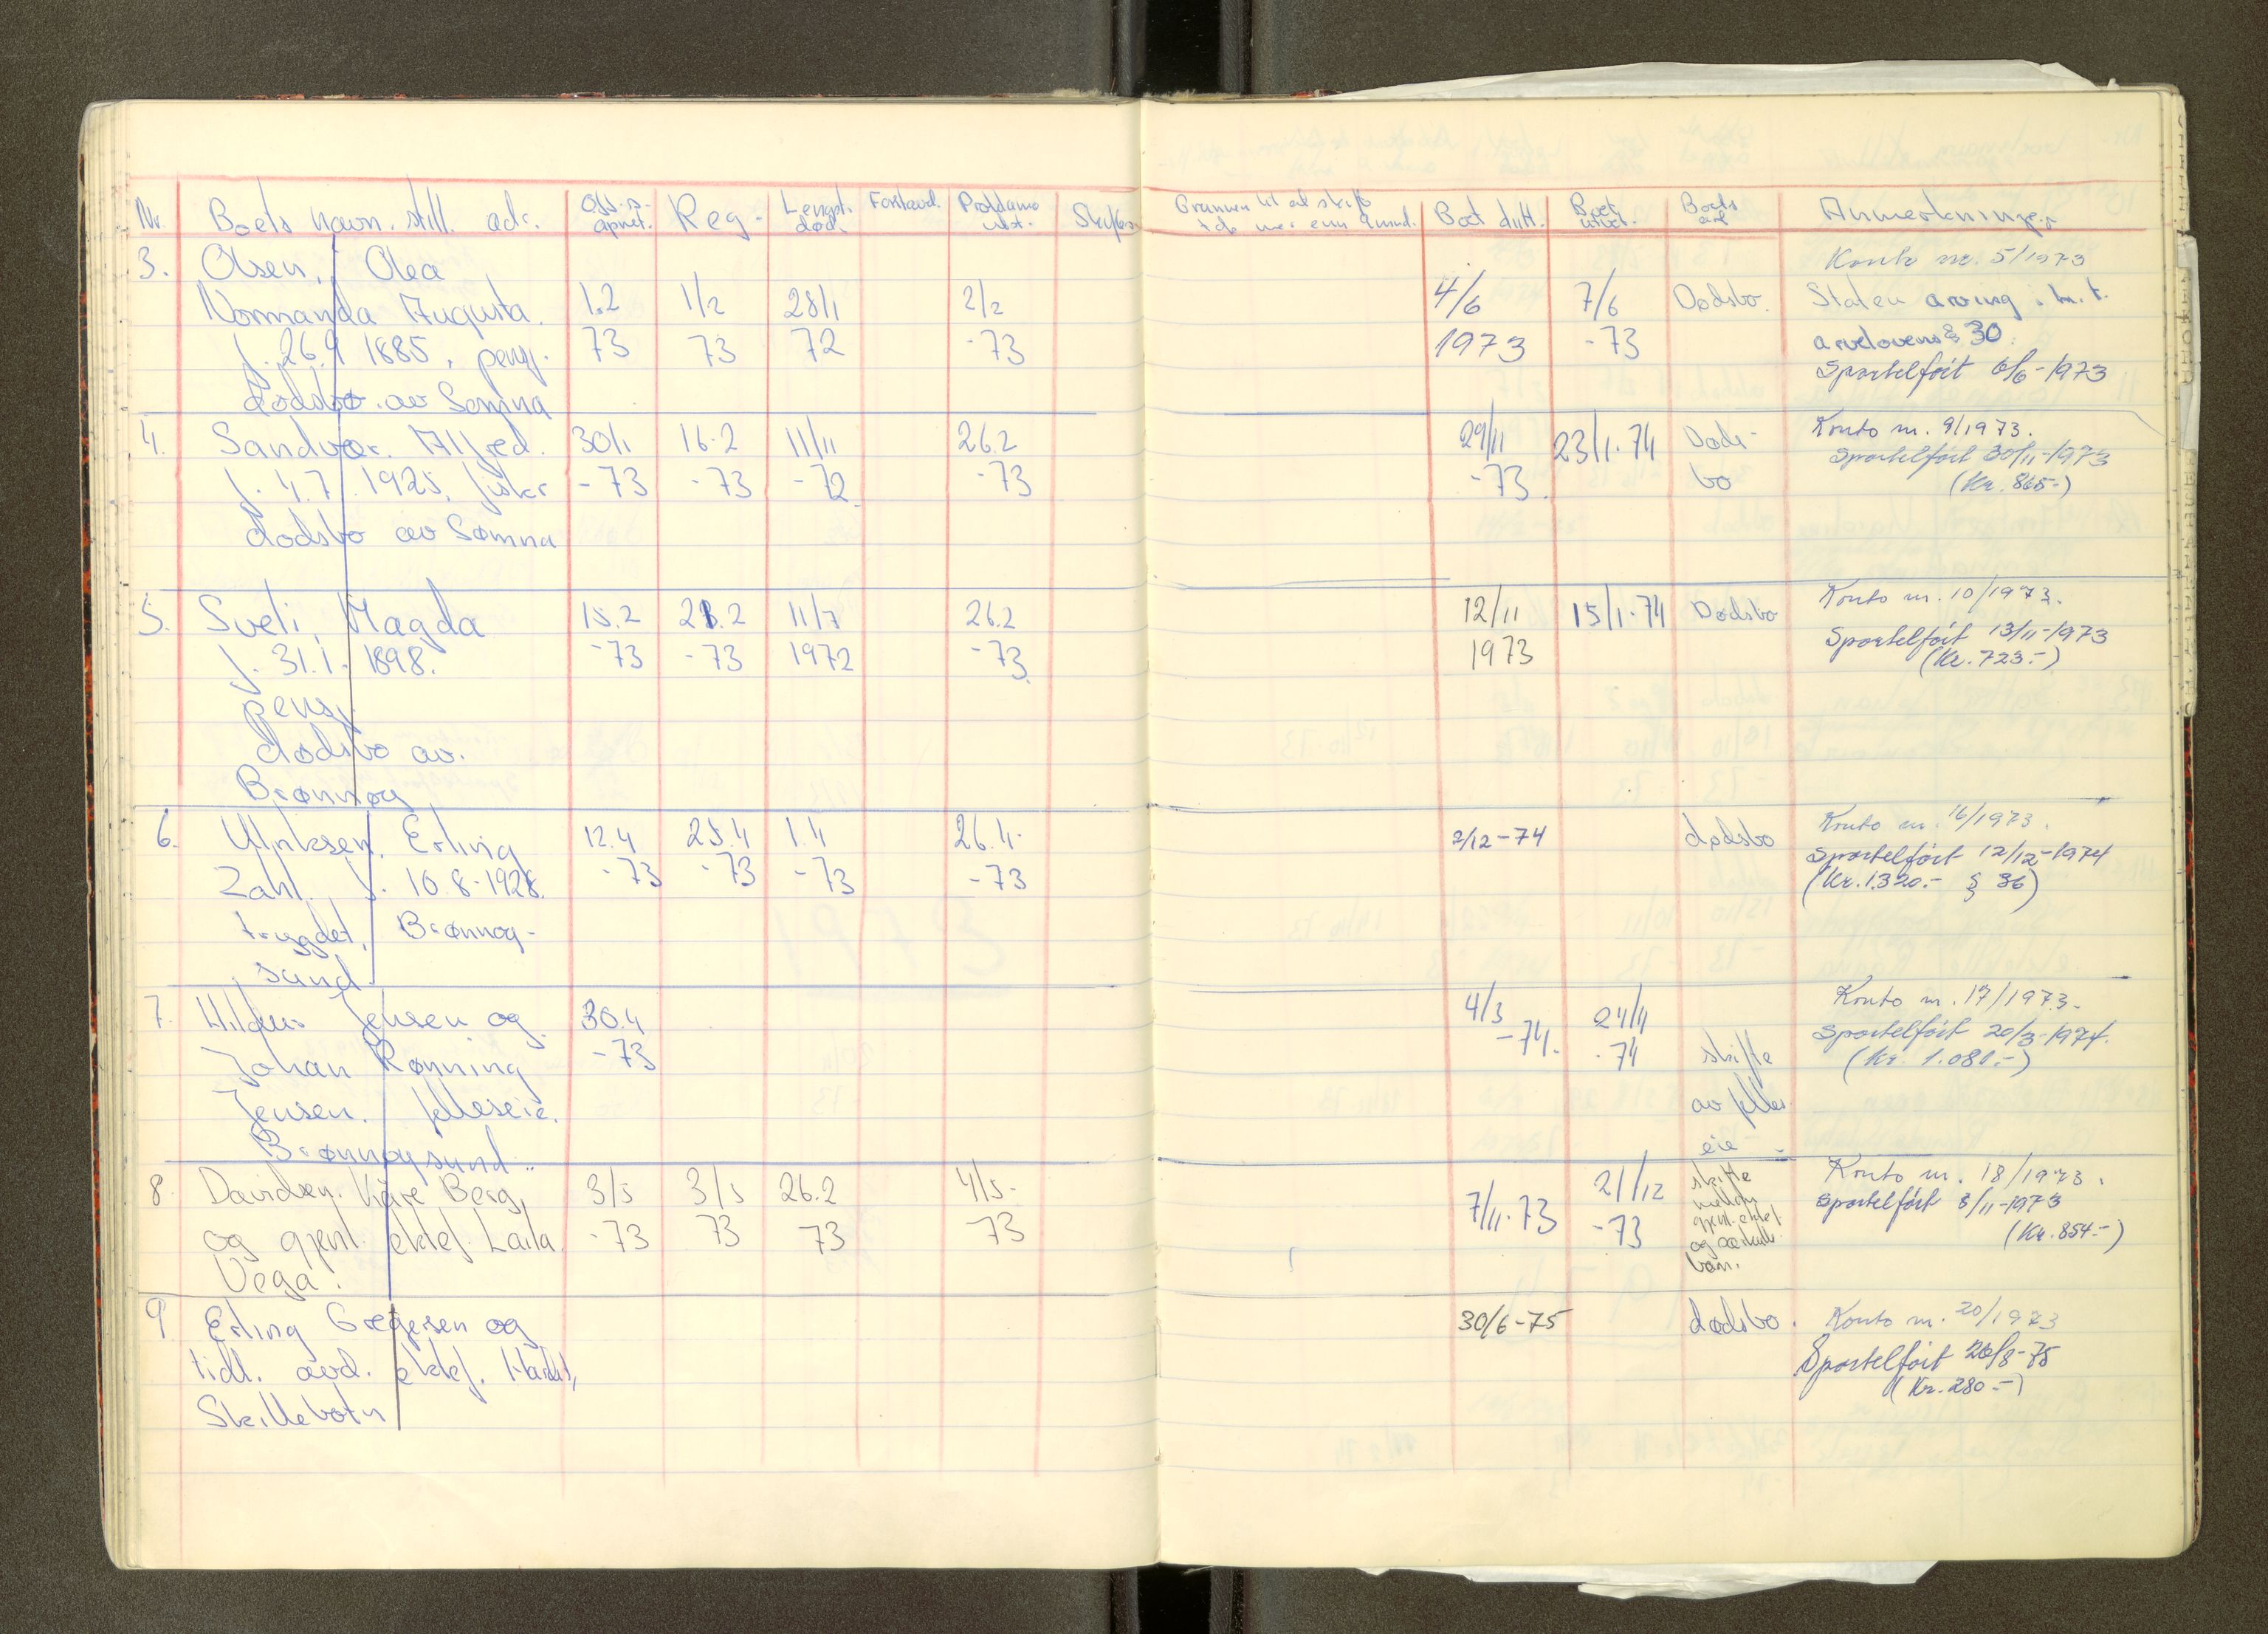 Nr. Boets navn. still. adr. Off. s. åpnet. Reg. Lengst. død. Forkavd. Proklama utst. Skifte
Grunnen til at skifte
tok mer enn 9 mnd. Boet slutt. Boet utlod. Boets art Anmerkninger
3. Olsen, Olea Konto nr. 5/1973
Normanda Augusta. 1.2 1/2 28/1 2/2 4/6 7/6 Dødsbo. Staten arving i h. t.
f. 26.9 1885, pensj. 73 73 72 -73 1973 -73 arvelovens § 30.
dødsbo av Sømna Sportelført 6/6-1973
4. Sandvær. Alfred. 30/1 16.2 11/11 26.2 29/11 23/1.74 Døds- Konto nr. 9/1973.
f. 4.7. 1925, fisker -73 -73 -72. -73 -73. bo Sportelført 30/11-1973
dødsbo av Sømna (Kr. 865-)
5. Sveli, Magda 15.2 21.2 11/7 26.2 12/11 15/1.74 Dødsbo Konto nr. 10/1973.
f. 31.1. 1898. -73 -73 1972 -73. 1973 Sportelført 13/11-1973
pensj. (Kr. 723.-)
dødsbo av.
Brønnøy
6. Ulriksen, Erling 12.4 25.4 1.4 26.4. 2/12-74 dødsbo Konto nr. 16/1973.
Zahl. f. 10.8.1928. -73 -73 -73 -73 Sportelført 12/12-1974
trygdet, Brønnøy- (Kr. 1.320.- § 36)
sund
7. Hildur Jensen og 30.4 4/3 24/4 Konto nr. 17/1973.
Johan Rønning -73 -74. -74 skifte Sportelført 20/3-1974.
Jensen. felleseie. av felles (Kr. 1.080.-)
Brønnøysund.. eie -
8. Davidsen. Kåre Berg, 3/5 3/5 26.2 4/5- 7/11.73 21/12 skifte Konto nr. 18/1973.
og gjenl. ektef. Laila. -73 73 73 73 -73 mellom gjenl. ektef. Sportelført 8/11-1973
Vega. og særkulls barn. (Kr. 854.-)
9 Erling Gregersen og 30/6-75 dødsbo. Konto nr. 20/1973
tidl. avd. ektef. Sportelført 26/8-75
Skillebotn (Kr. 280.-)